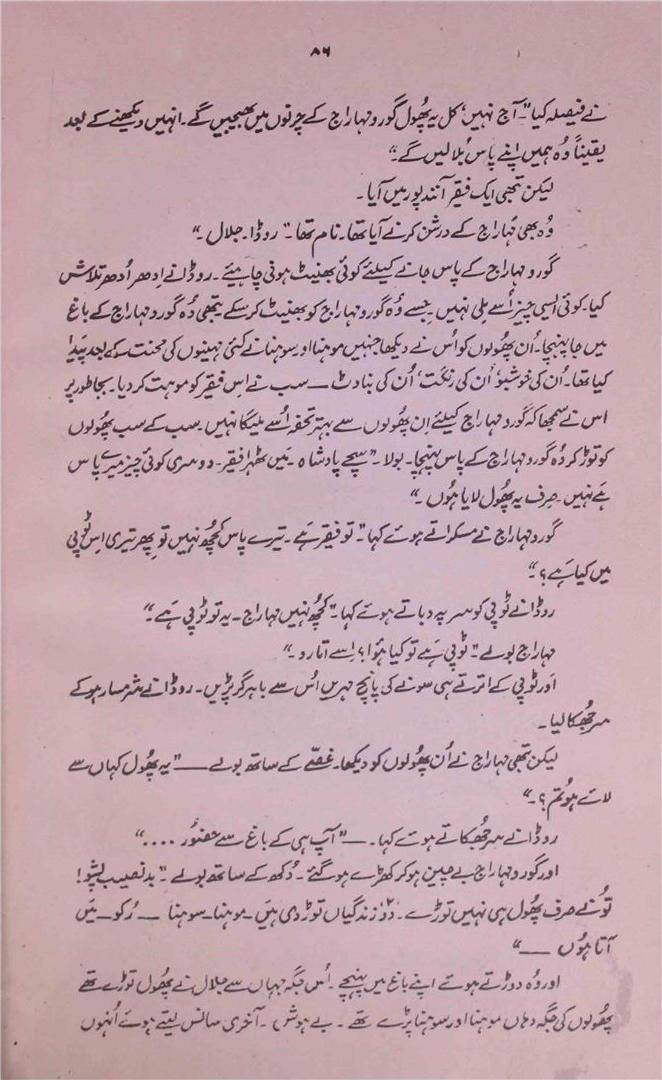 ۸۶
نے فیصلہ کیا"۔ آج نہیں، کل یہ پھُول گورو مہاراج کے چرنوں میں بھیجیں گے۔ انہیں دیکھنے کے بعد
یقیناً وُہ ہمیں اپنے پاس بُلا لیں گے۔"
لیکن تبھی ایک فقیر آنند پور میں آیا۔
وُہ بھی مہاراج کے درشن کرنے آیا تھا۔ نام تھا۔ "روڈا۔ جلال۔"
گورو مہاراج کے پاس جانے کیلئے کوئی بھینٹ ہونی چاہیئے۔ روڈا نے اِدھر اُدھر تلاش
کیا۔ کوئی ایسی چیز اُسے ملی نہیں۔ جسے وُہ گورو مہاراج کو بھینٹ کر سکے۔ تبھی وُہ گورو مہاراج کے باغ
میں جا پہنچا۔ اُن پھُولوں کو اُس نے دیکھا جنہیں موہنا اور سوہنا نے کئی مہینوں کی محنت کے بعد پیدا
کیا تھا۔ اُن کی خوشبو، اُن کی رنگت، اُن کی بناوٹ ـــ سب نے اِس فقیر کو موہت کر دیا۔ بجا طور پر
اس نے سمجھا کہ گورو مہاراج کیلئے اِن پھُولوں سے بہتر تحفہ اُسے ملیگا نہیں۔ سب کے سب پھُولوں
کو توڑ کر وُہ گورو مہاراج کے پاس پہنچا۔ بولا۔ "سچے پادشاہ۔ میں ٹھہرا فقیر۔ دوسری کوئی چیز میرے پاس
ہے نہیں۔ صِرف یہ پھُول لایا ہُوں۔"
گورو مہاراج نے مسکراتے ہوئے کہا "۔ تو فقیر ہے۔ تیرے پاس کچھُ نہیں تو پھر تیری اِس ٹوپی
میں کیا ہے؟۔"
روڈا نے ٹوپی کو سر پہ دباتے ہوئے کہا۔ "کچھُ نہیں مہاراج۔ یہ تو ٹوپی ہے۔"
مہاراج بولے۔ "ٹوپی ہے تو کیا ہُوا؟ اِسے اتارو۔"
اَور ٹوپی کے اترتے ہی سونے کی پانچ مہریں اُس سے باہر گر پڑیں۔ روڈا نے شرمسار ہو کے
سر جھُکا لیا۔
لیکن تبھی مہاراج نے اُن پھُولوں کو دیکھا۔ غصّے کے ساتھ بولے ـــ "یہ پھُول کہاں سے
لائے ہو تُم؟۔"
روڈا نے سر جھُکاتے ہوئے کہا۔ ـــ "آپ ہی کے باغ سے حضُور ...."
اور گورو مہاراج بے چین ہو کر کھڑے ہو گئے۔ دُکھ کے ساتھ بولے۔ "بدنصیب پشو!
تُو نے صرف پھُول ہی نہیں توڑے۔ دو زندگیاں توڑ دی ہیں۔ موہنا۔ سوہنا ـــ رُکو۔ میں
آتا ہُوں ـــ"
اور وُہ دوڑتے ہوئے اپنے باغ میں پہنچے۔ اُس جگہ جہاں سے جلال نے پھُول توڑے تھے
پھُولوں کی جگہ وہاں موہنا اور سوہنا پڑے تھے۔ بے ہوش۔ آخری سانس لیتے ہوئے اُنہوں